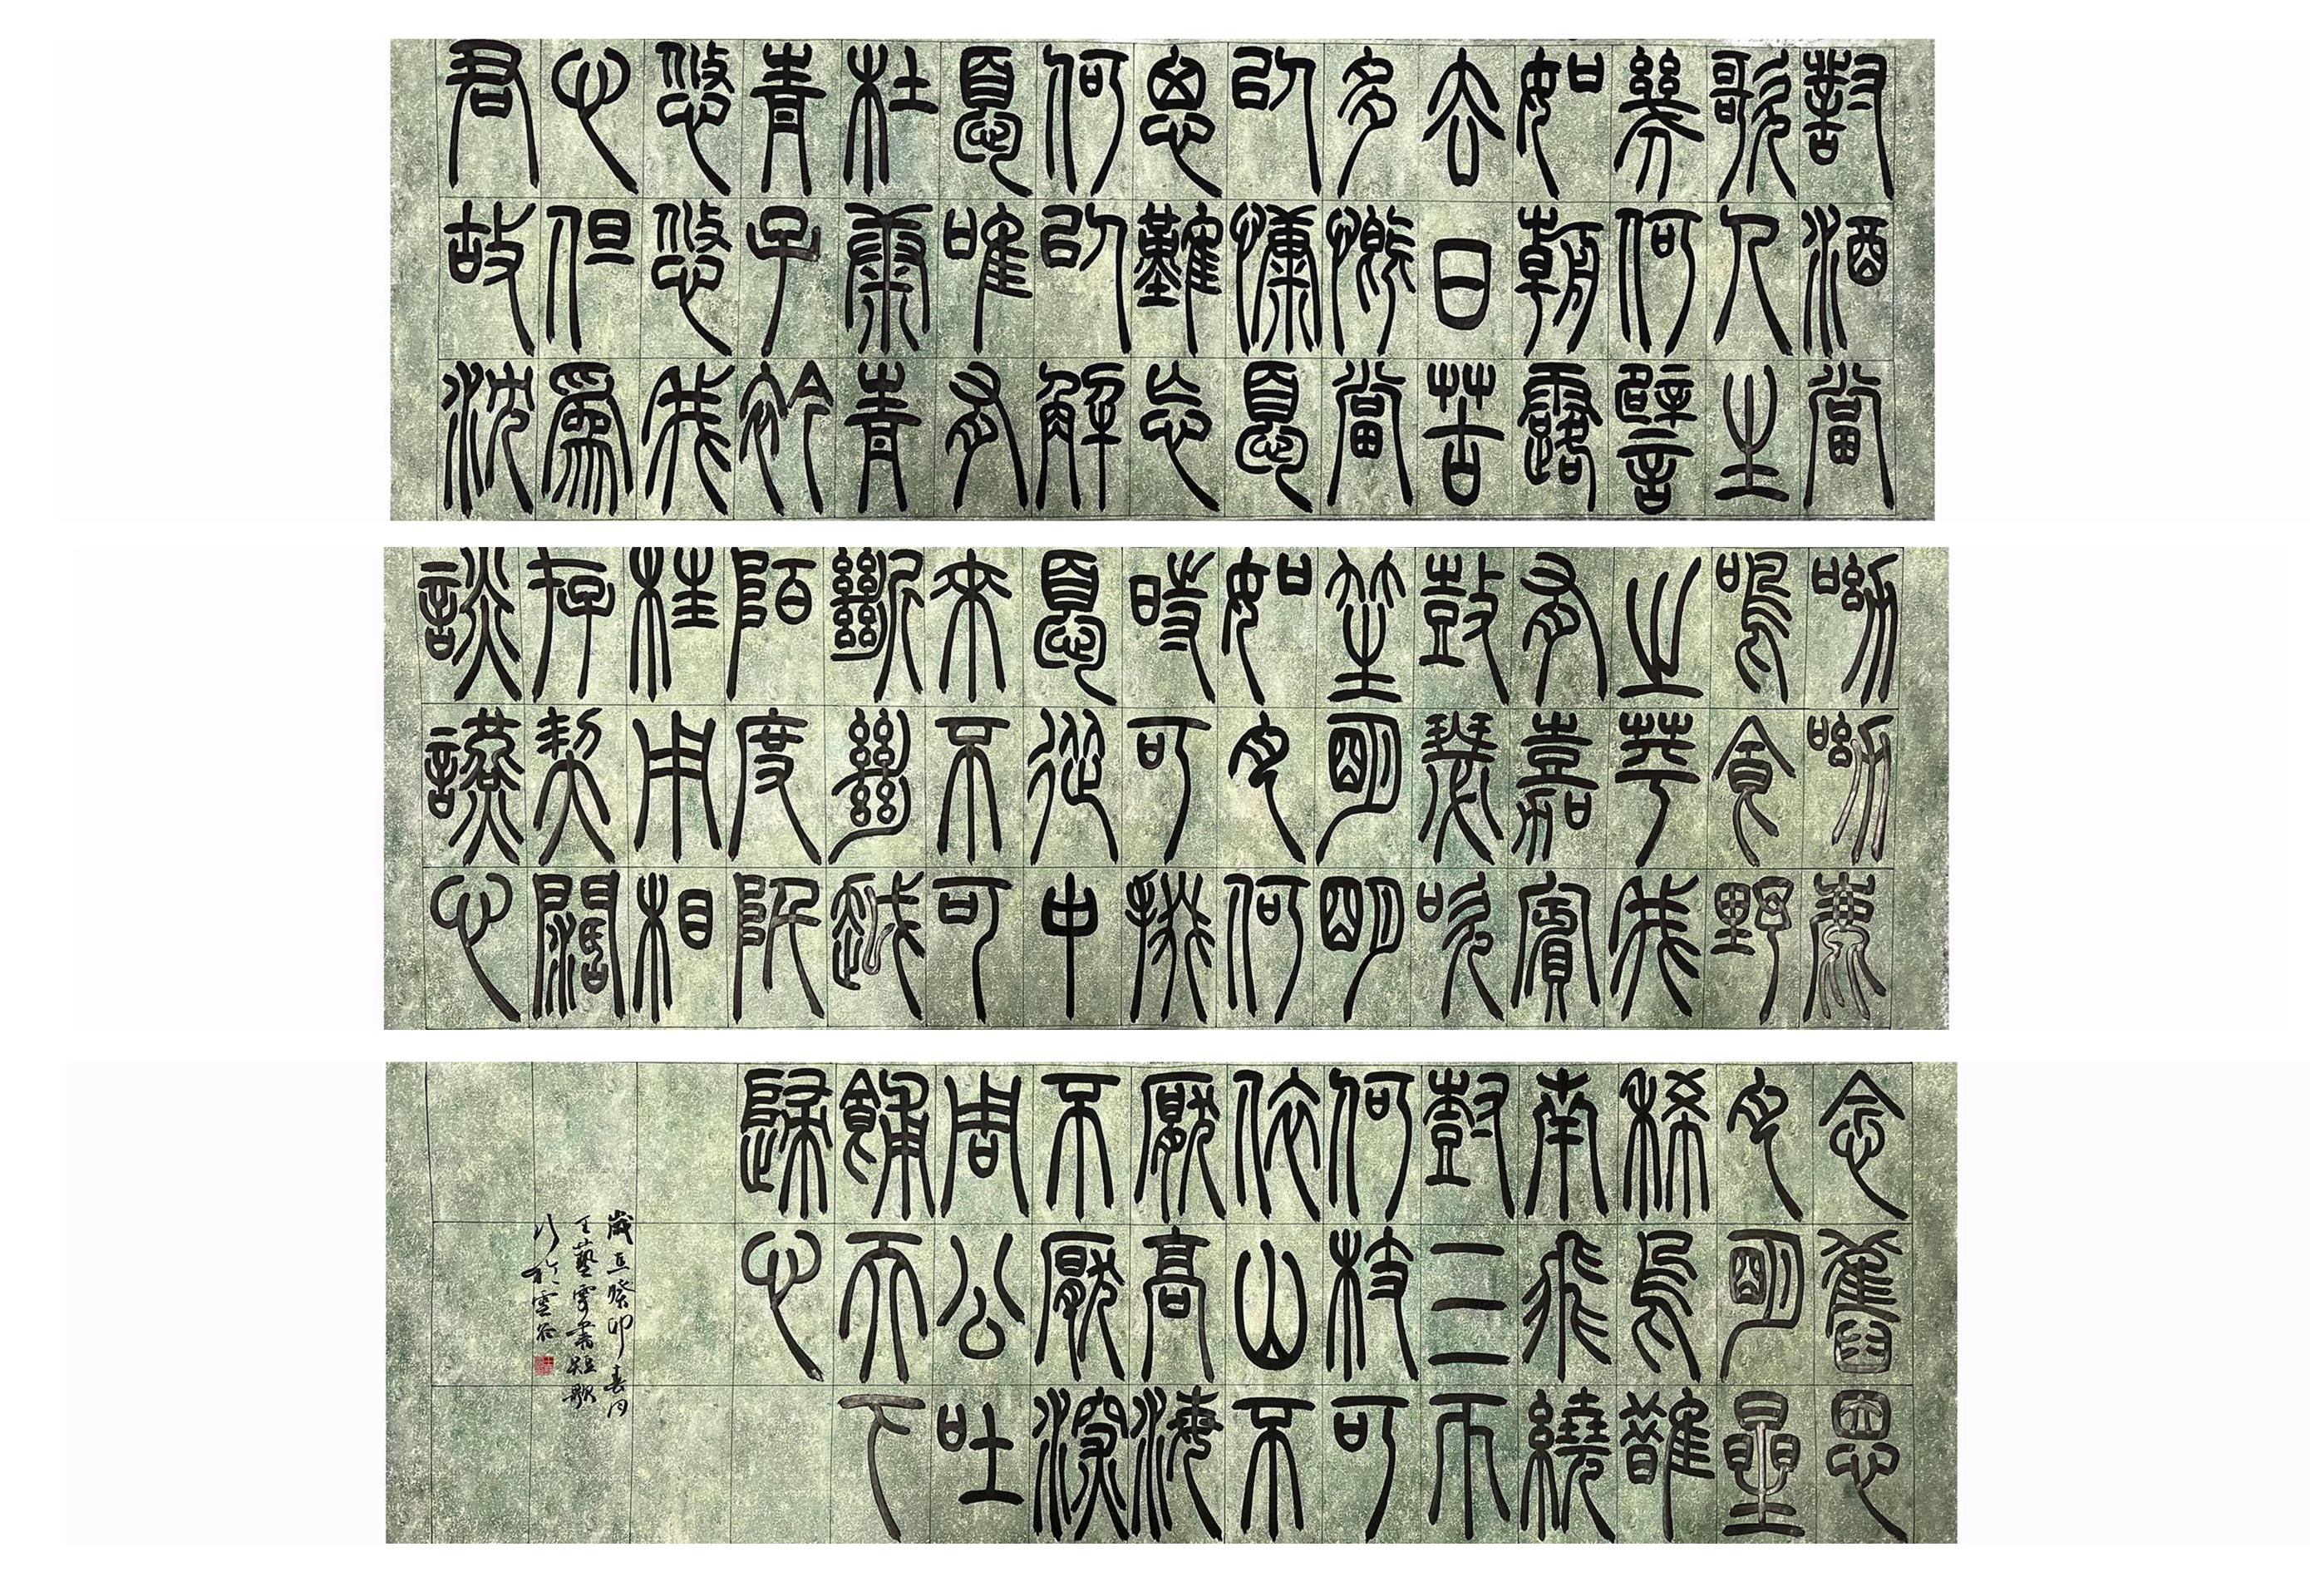 對酒當
歌人生
幾何譬
如朝露
去日苦
多慨當
以慷憂
思難忘
何以解
憂唯有
杜康青
青子衿
悠悠我
心但為
君故沈
呦呦鹿
鳴食野
之苹我
有嘉賓
鼓瑟吹
笙明明
如月何
時可掇
憂從中
來不可
斷絕越
陌度阡
枉用相
存契闊
談讌心
念舊恩
月明星
稀烏鵲
南飛繞
樹三匝
何枝可
依山不
厭高海
不厭深
周公吐
哺天下
歸心
歲在癸卯春月
王藝書短歌
行於雲谷